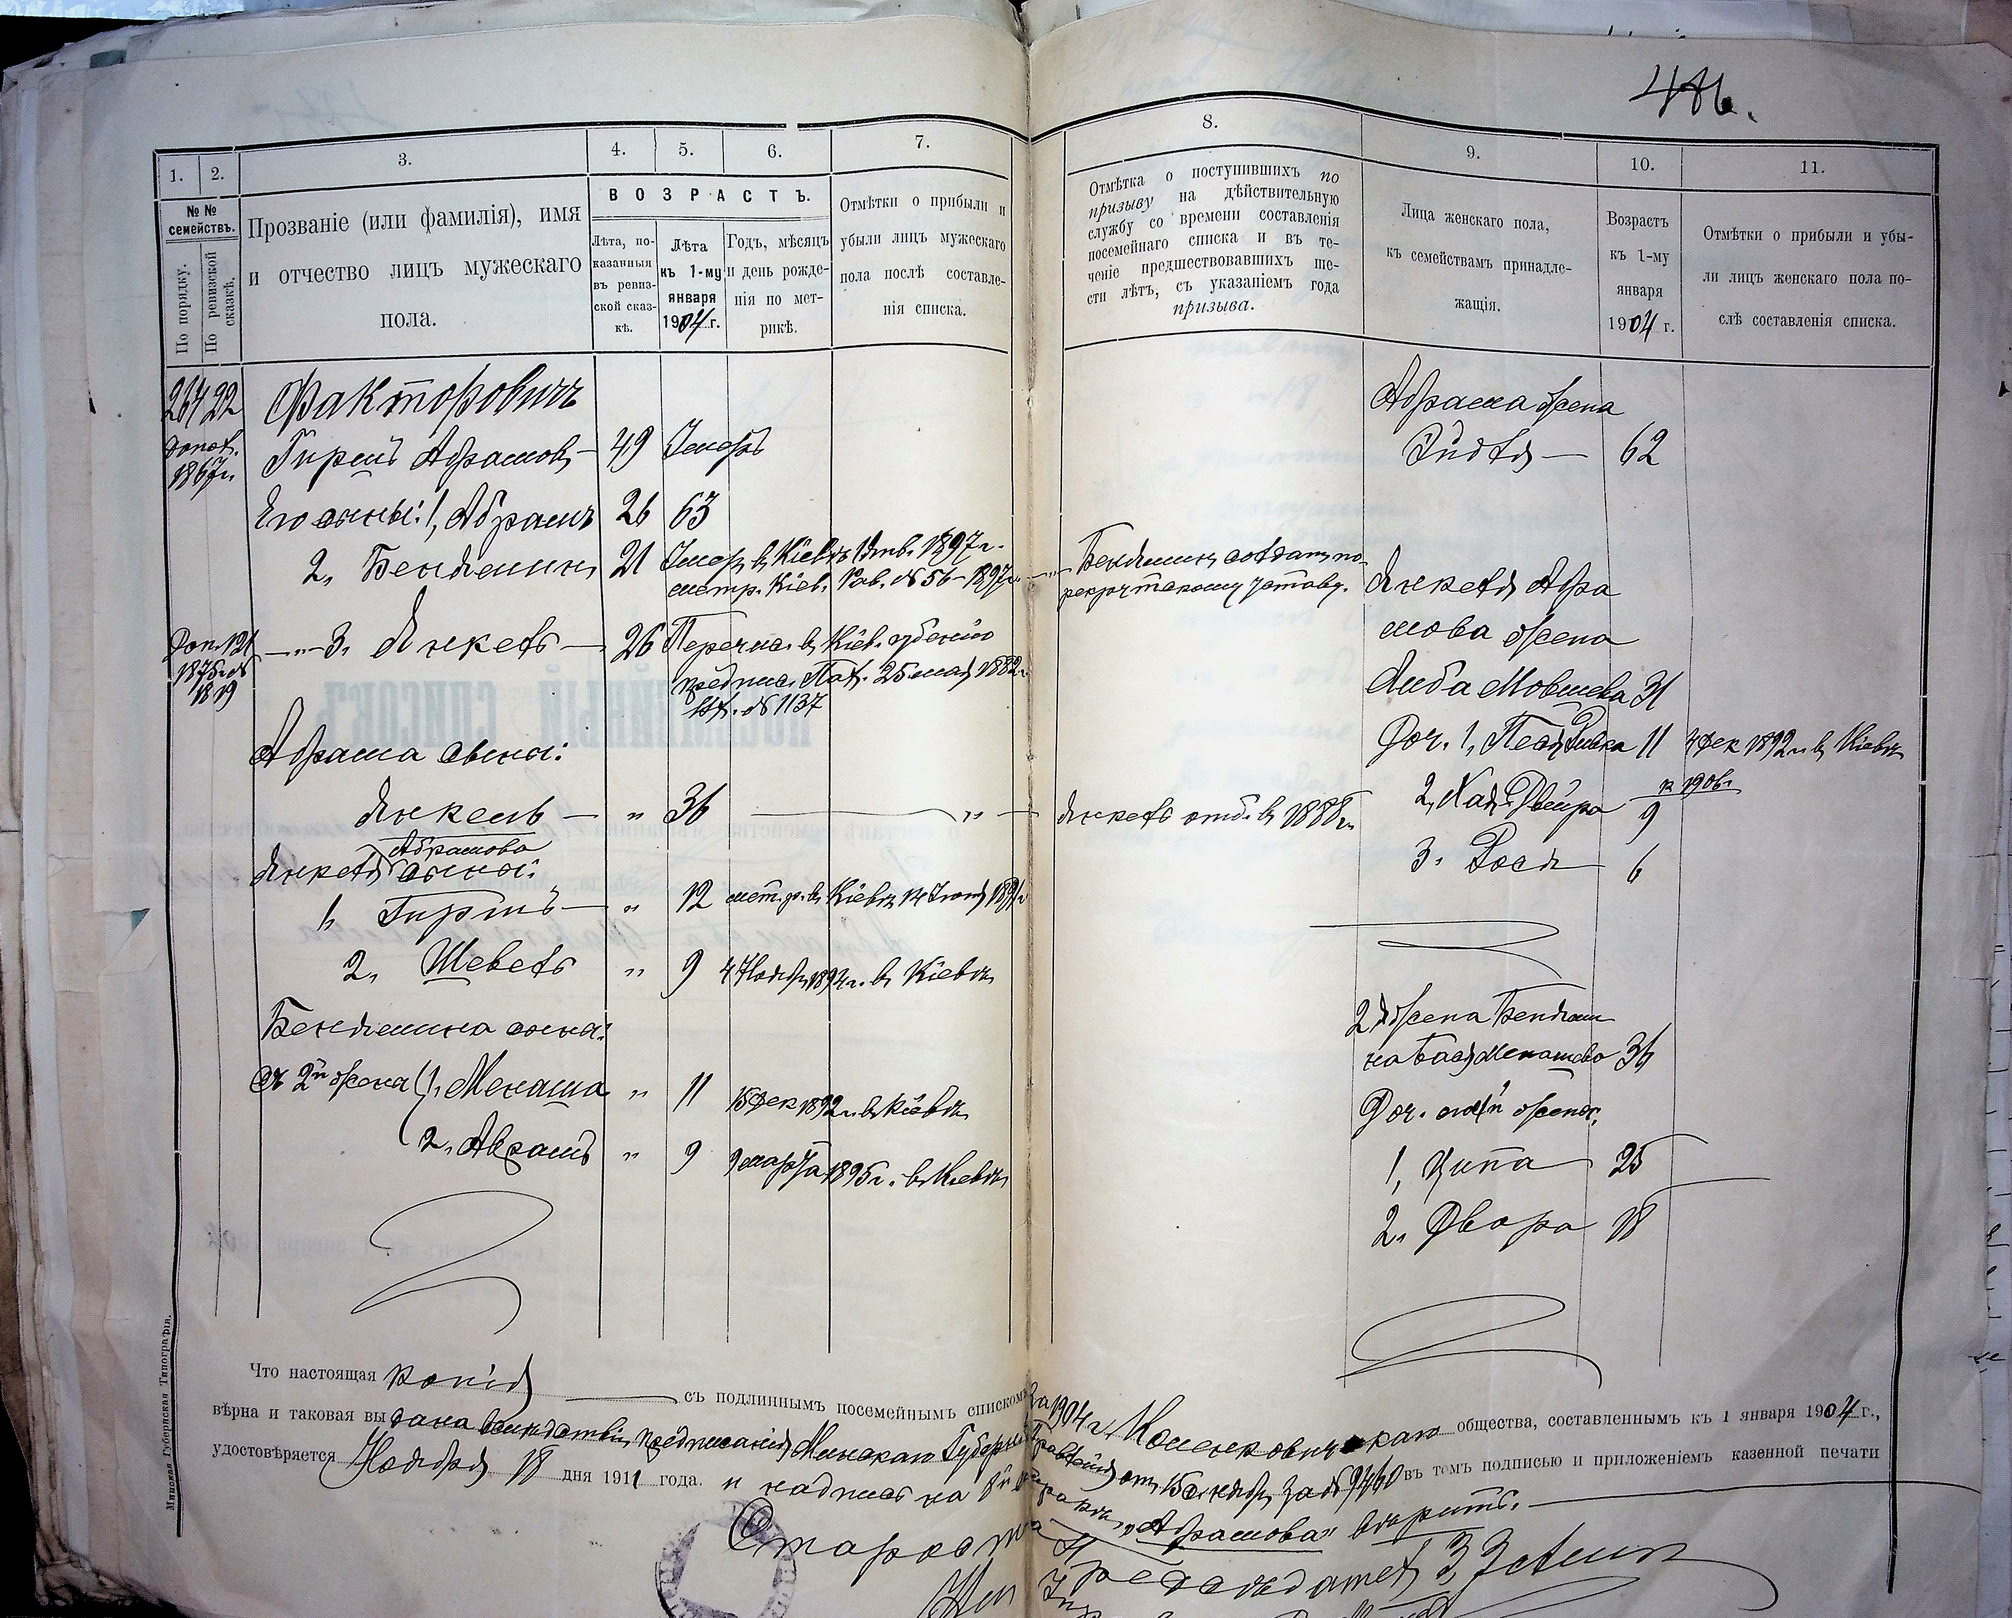 486.
1.
2.
3.
4.
5.
6.
7.
8.
9.
10.
11.
№ № семействъ.
По порядку.
По ревизской сказкѣ.
Прозваніе (или фамилія), имя
и отчество лицъ мужескаго
пола.
ВОЗРАСТЪ.
Лѣта, по-
казанныя
въ ревиз-
ской сказ-
кѣ.
Лѣта
къ 1-му
января
1904 г.
Годъ, мѣсяцъ
и день рожде-
нія по мет-
рикѣ.
Отмѣтки о прибыли и
убыли лицъ мужескаго
пола послѣ составле-
нія списка.
Отмѣтка о поступившихъ по
призыву на дѣйствительную
службу со времени составленія
посемейнаго списка и въ те-
ченіе предшествовавшихъ ше-
сти лѣтъ, съ указаніемъ года
призыва.
Лица женскаго пола,
къ семействамъ принадле-
жащія.
Возрастъ
къ 1-му
января
1904 г.
Отмѣтки о прибыли и убы-
ли лицъ женскаго пола по-
слѣ составленія списка.
264 22 Факторовичъ
1867г. Гиршъ Абрамов. 49 Умеръ
Его сыны: 1, Абрамъ 26 63
2, Беньяминъ 21 Умеръ в Кіевѣ 1897 г.
метр. Кіев. Рав. № 56 - 1897 г.
Доп. 121 3, Янкель 26 Перечис. в Кіев. губернію
1875 г. № предпис. Пал. 25 мая 1882 г.
1819 № 1137
Абрама сынъ:
Янкель — " 36
Абрамова
Янкеля сыны:
1, Гиршъ — " 12 метр. в Кіевѣ 14 1891 г.
2, Шевель " 9 4 Ноябр. 1894 г. в Кіевѣ
Беньямина сыны:
отъ 2й жены (1, Менаша " 11 15 Дек 1892 г. в Кіевѣ
2, Абрамъ " 9 9 марта 1895 г. в Кіевѣ
Беньяминъ по
рекрутскому уставу.
Янкель отб. в 1888 г.
Абрама жена
— 62
Янкеля Абра
мова жена
Либа Мовшева 31
Доч. 1, Песя Ривка 11 4 Дек 1892 г. в Кіевѣ
2, Хая Двейра 9
3, Рося 6
2я жена Беньями
на Бася Менашова 36
Доч. отъ 1й жены,
1, Ципа 25
2, Двора 18
Что настоящая копія съ подлиннымъ посемейнымъ спискомъ за 1904 г. общества, составленнымъ къ 1 января 1904 г.,
вѣрна и таковая выдана вслѣдствіе предписанія Минскаго Губернск. Правленія отъ 15 за № 9460 въ томъ подписью и приложеніемъ казенной печати
удостовѣряется Ноября 18 дня 1911 года. и надпись на "Абрамова" вѣрить.
Староста
Минская Губернская Типографія.